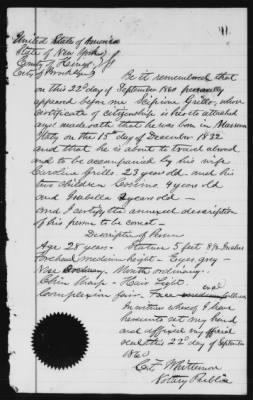 11.
United States of America
State of New York
County of Kings
City of Brooklyn
Be it remembered that
on this 22d day of September 1860 personally
appeared before me Scipione Grillo, whose
certificate of citizenship is hereto attached
and made oath that he was born in
Italy on the 15th day of December 1832
and that he is about to travel abroad
and to be accompanied by his wife
Caroline Grillo 23 year old and his
two children Cosimo 4 years old
and Isabella 2 years old—
and I certify the annexed description
of his person to be correct—
Description of Person
Age 28 years. Stature 5 feet 8½ Inches
Forehead medium height— Eyes, grey—
Nose ordinary. Mouth ordinary.
Chin Sharp— Hair Light.
Complexion fair. Face oval
In witness whereof I have
hereunto set my hand
and affixed my official
seal this 22d day of September
1860
Whittemore
Notary Public